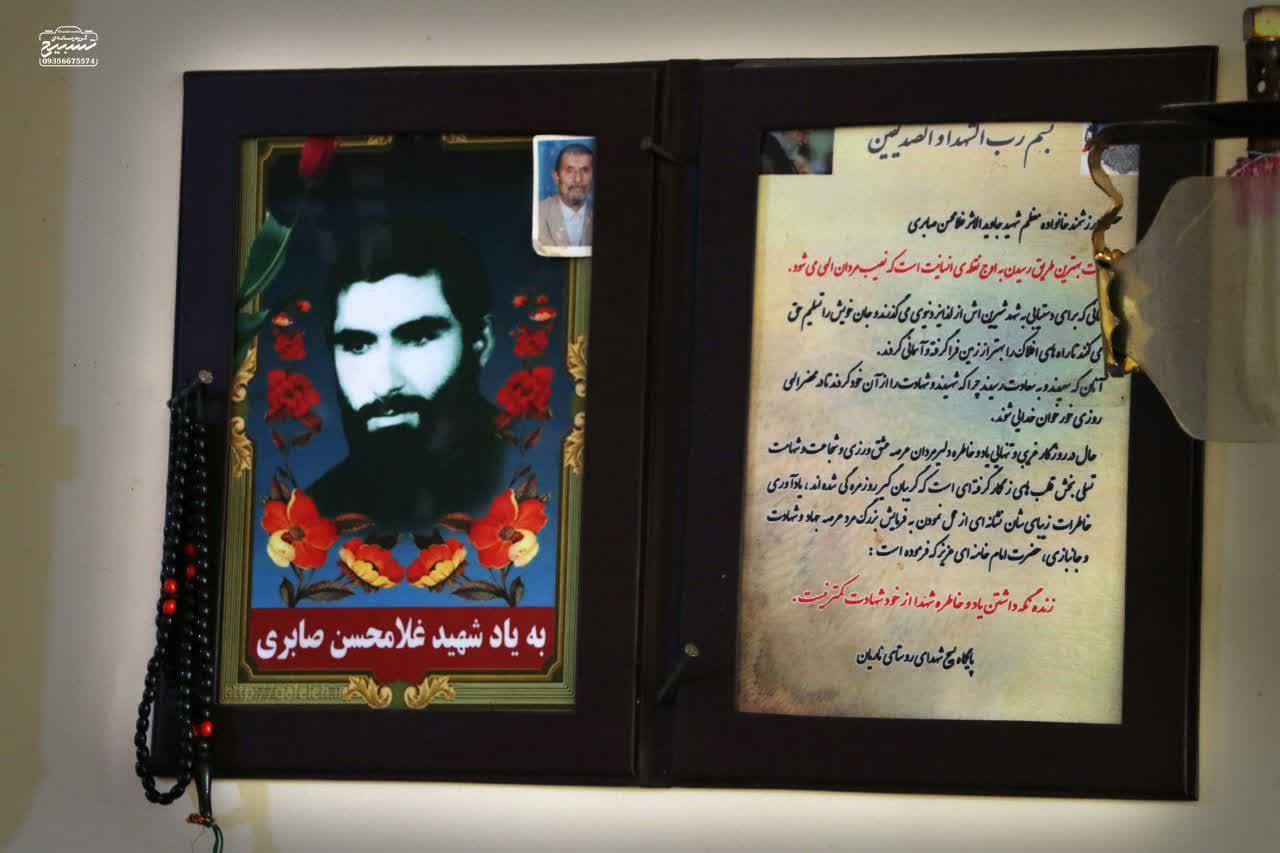 گروه رسانه ای
تسبیح
09356675574
به یاد شهید غلامحسن صابری
بسم رب الشهدا و الصدیقین
خانواده معظم شهید جاوید الاثر غلامحسن صابری
بهترین طریق رسیدن به اوج نقطه ی انسانیت است که نصیب مردان الهی می شود.
که برای دستیابی به شهد شیرین اش از لذایذ دنیوی می گذرند و جان خویش را تسلیم حق
می کنند تا راه های افلاک را بهتر از زمین فرا گرفته و آسمانی گردند.
آنان که سعیدند و به سعادت رسیدند چرا که شهیدند و شهادت را از آن خود کردند تا در محضر الهی
روزی خور خوان خدایی شوند.
حال در روزگار غریبی و تنهایی یاد و خاطره دلیرمردان عرصه عشق ورزی و شجاعت و شهامت
تسلی بخش قلب های زنگار گرفته ای است که گریبان گیر روزمره گی شده اند، یادآوری
خاطرات زیبای شان نشانه ای از عمل نمودن به فرمایش بزرگ مرد عرصه جهاد و شهادت
و جانبازی، حضرت امام خامنه ای عزیز که فرموده است :
زنده نگه داشتن یاد و خاطره شهدا از خود شهادت کمتر نیست.
پایگاه بسیج شهدای روستای ناریان